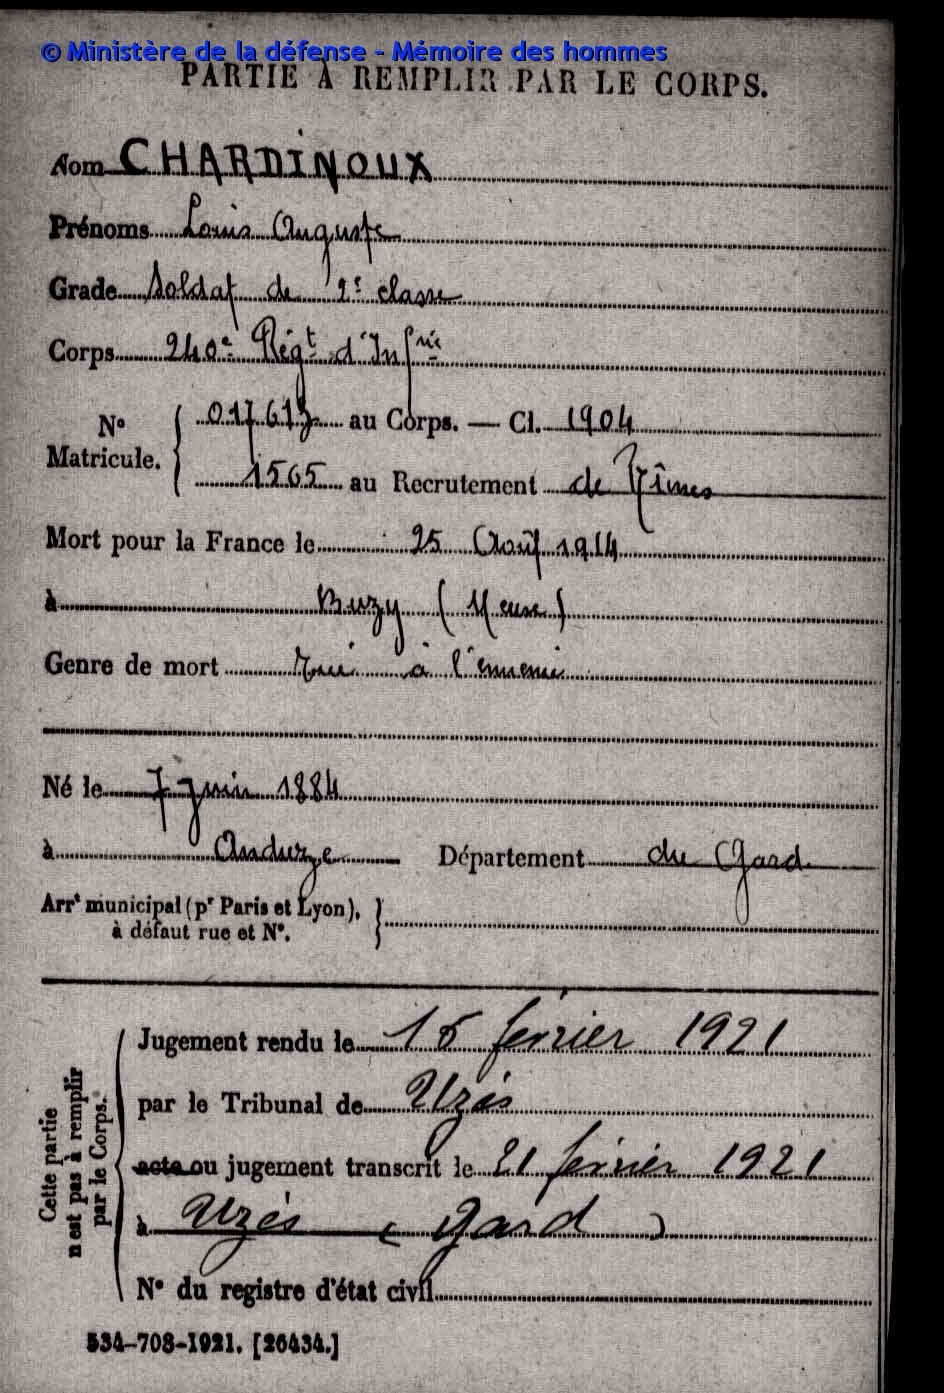 © Ministère de la défense - Mémoire des hommes
PARTIE À REMPLIR PAR LE CORPS.
Nom CHARDINOUX
Prénoms Louis Auguste
Grade Soldat de 2e classe
Corps 240e Régt d'Infrie
No Matricule. 017613 au Corps. — Cl. 1904
1565 au Recrutement de Nîmes
Mort pour la France le 25 Août 1914
à Buzy (Meuse)
Genre de mort Tué à l'ennemi
Né le 7 Juin 1884
à Anduze Département du Gard
Arrt municipal (pr Paris et Lyon),
à défaut rue et No.
Cette partie
n'est pas à remplir
par le Corps.
Jugement rendu le 15 février 1921
par le Tribunal de Uzès
acte ou jugement transcrit le 21 février 1921
à Uzès (Gard)
No du registre d'état civil
534-708-1921. [26434.]